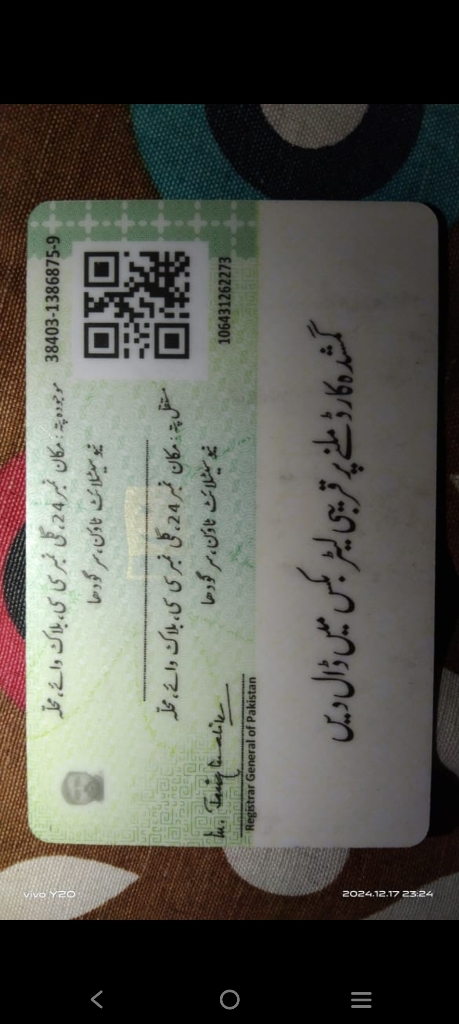 38403-1386875-9
موجودہ پتہ: مکان نمبر 24، گلی نمبر سی سی، بلاک وائے، محلہ
نیو سیٹلائٹ ٹاؤن، سرگودھا
مستقل پتہ: مکان نمبر 24، گلی نمبر سی سی، بلاک وائے، محلہ
نیو سیٹلائٹ ٹاؤن، سرگودھا
106431262273
Registrar General of Pakistan
گمشدہ کارڈ ملنے پر قریبی لیٹر بکس میں ڈال دیں
vivo Y20
2024.12.17 23:24